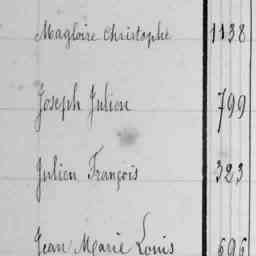 Magloire Christophe 1138
Joseph Julien 799
Julien François 323
Jean Marie Louis 696